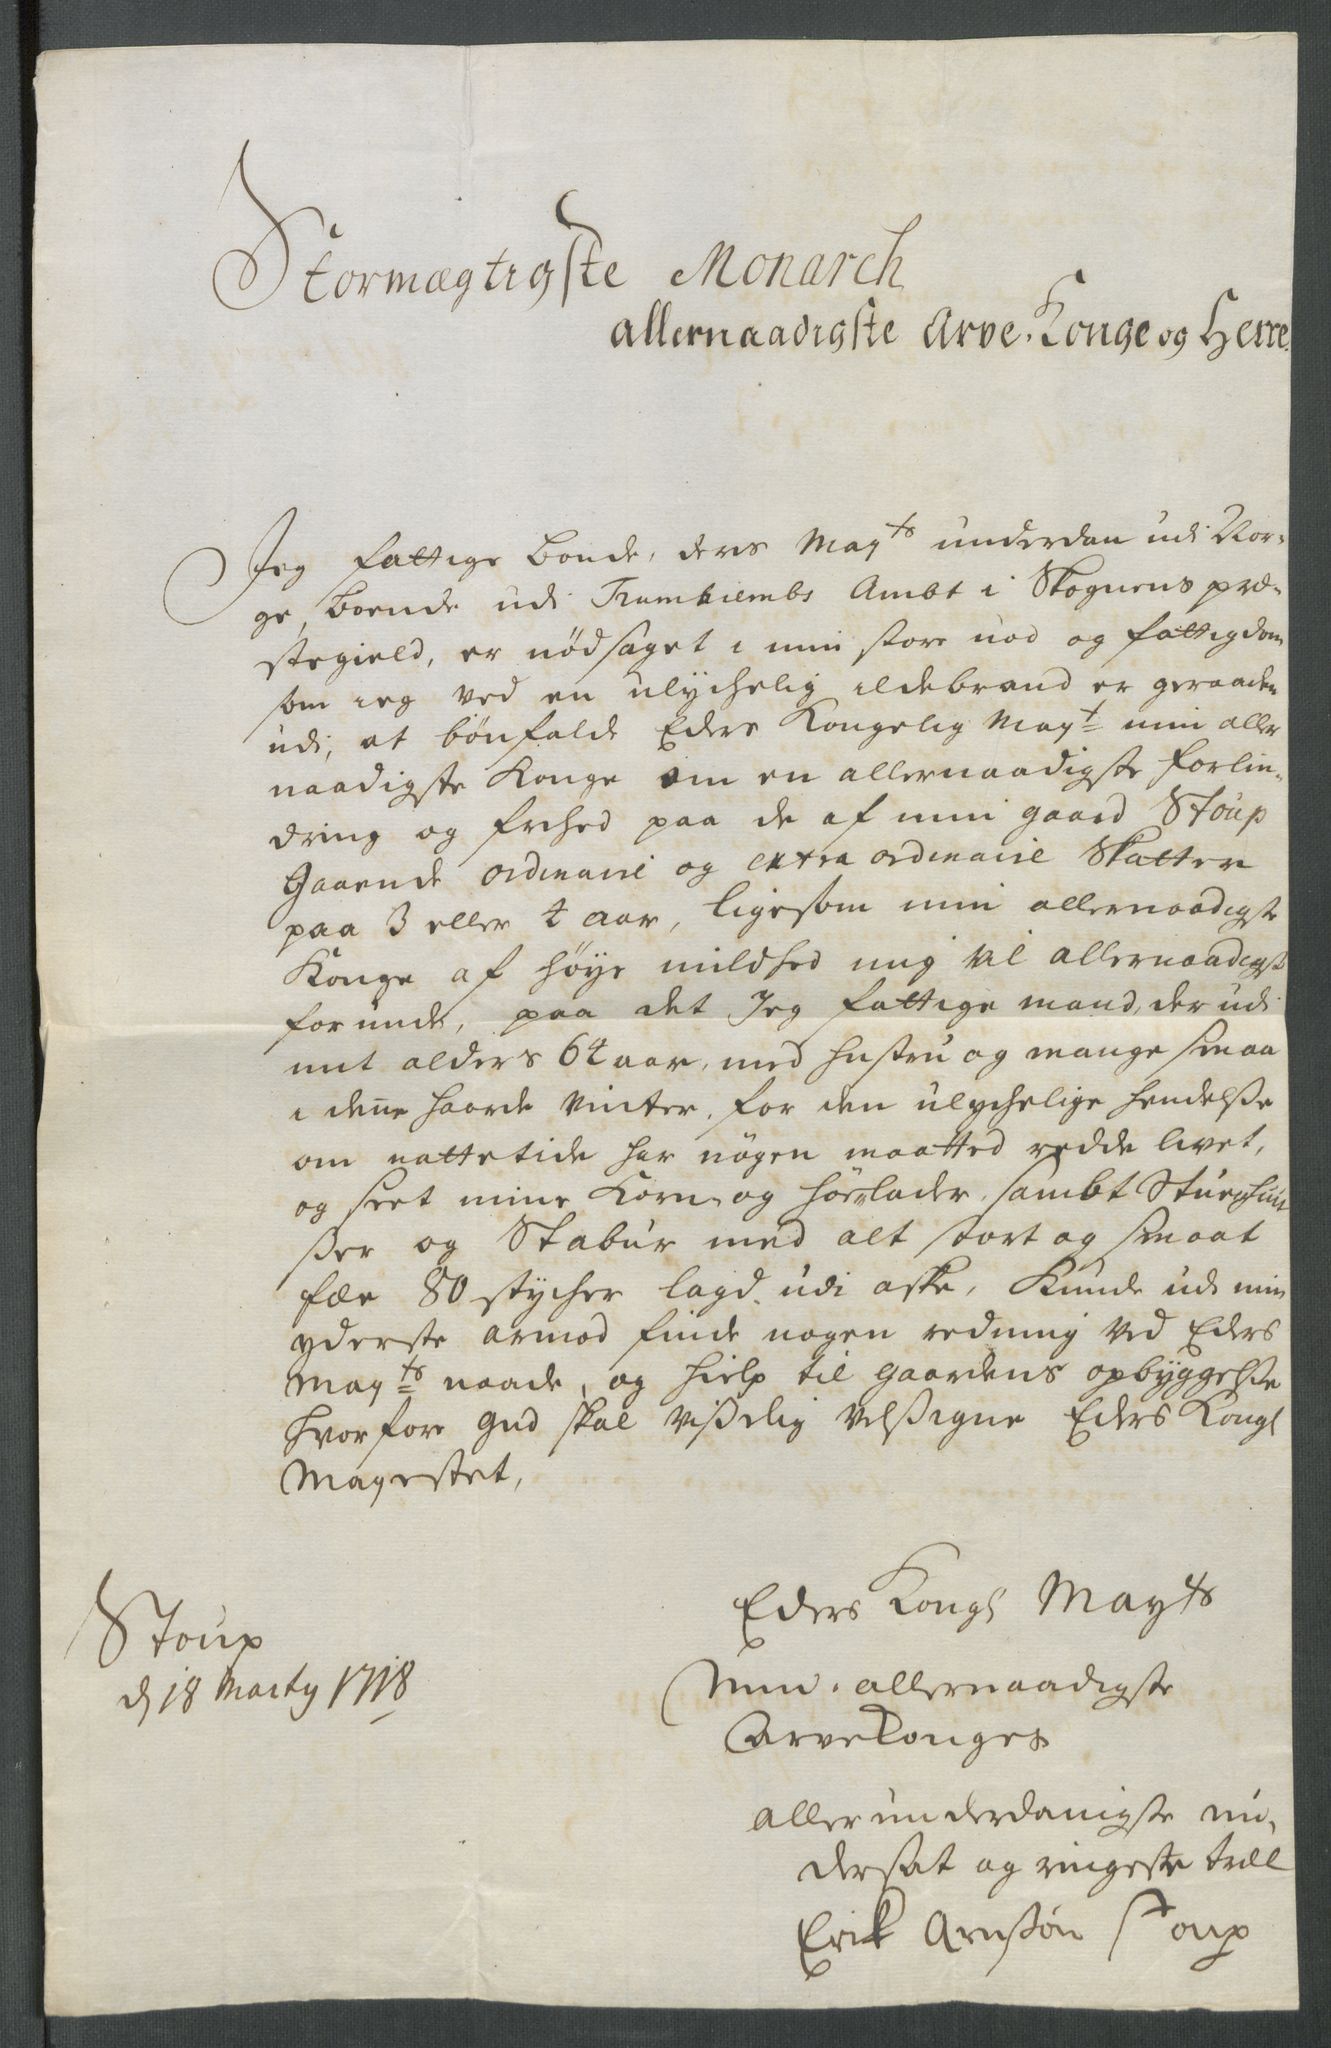 Stormægtigste Monarch
allernaadigste Arve-Konge og Herre.
Jeg fattige bonde, ders Mayts underdan udi Nor-
ge, boende udi Trundhiembs Ambt i Skognens præ-
stegield, er nödsaget i min store nöd og fattigdom
som ieg ved en ulychelig ildebrand er geraaden
udi, at bönfalde Eders Kongelig Mayt min aller
naadigste Konge om en allernaadigste forlin-
dring og frihed paa de af min gaard Stoup
Gaaende ordinarie og extra ordinarie Skatter
paa 3 eller 4 aar, ligesom min allernaadigste
Konge af höye mildhed mig vil allernaadigst
forunde, paa det Jeg fattige mand, der udi
mit alders 64 aar, med hustru og mange smaa
i denne haarde vinter, for den ulychelige hendelsse
om nattetide har nögen maatted redde livet,
og seet mine Korn- og höelader, sambt Stuehuu
sser og Stabur med alt stort og smaat
fæe 80 stycher lagd udi aske, Kunde udi min
yderste armod finde nogen redning ved Eders
Mayts naade, og hielp til gaardens opbyggelsse
hvorfore Gud skal visselig velssigne Eders Kongl
Mayestet,
Eders Kongl Mayts
Stoup
d 18 Marty 1718
Min allernaadigste
Arve Konges
allerunderdanigste un-
dersat og ringeste træl
Erik Arnssön Stoup